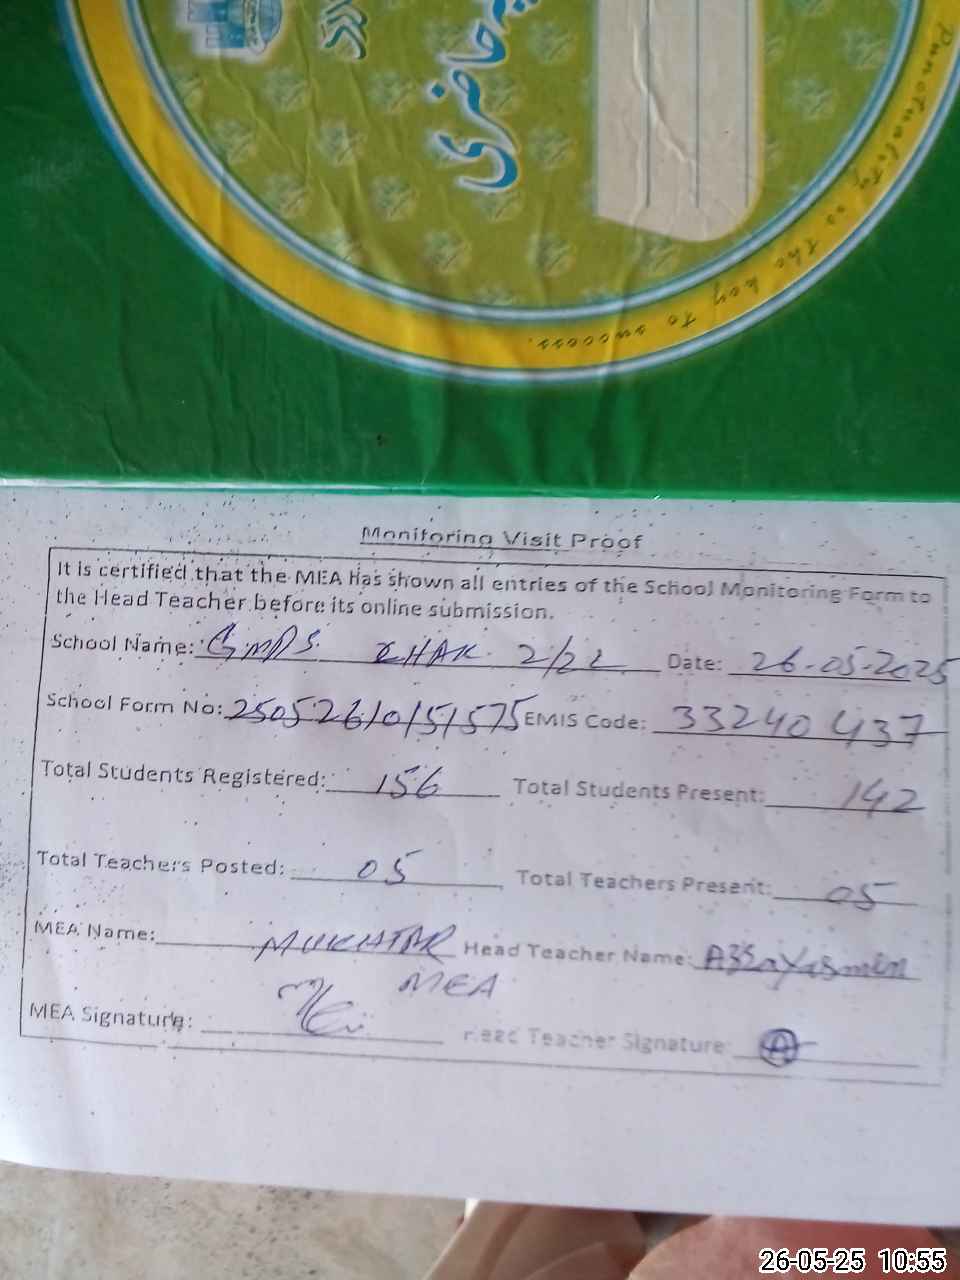 حاضری
Punctuality is the key to success.
Monitoring Visit Proof
It is certified that the MEA Has shown all entries of the School Monitoring Form to
the Head Teacher before its online submission.
School Name: GMPS CHAK 2/2L Date: 26-05-2025
School Form No: 25052610151575 EMIS Code: 33240437
Total Students Registered: 156 Total Students Present: 142
Total Teachers Posted: 05 Total Teachers Present: 05
MEA Name: MUKHTAR Head Teacher Name: AzraYasmeen
MEA
MEA Signature: Head Teacher Signature:
26-05-25 10:55